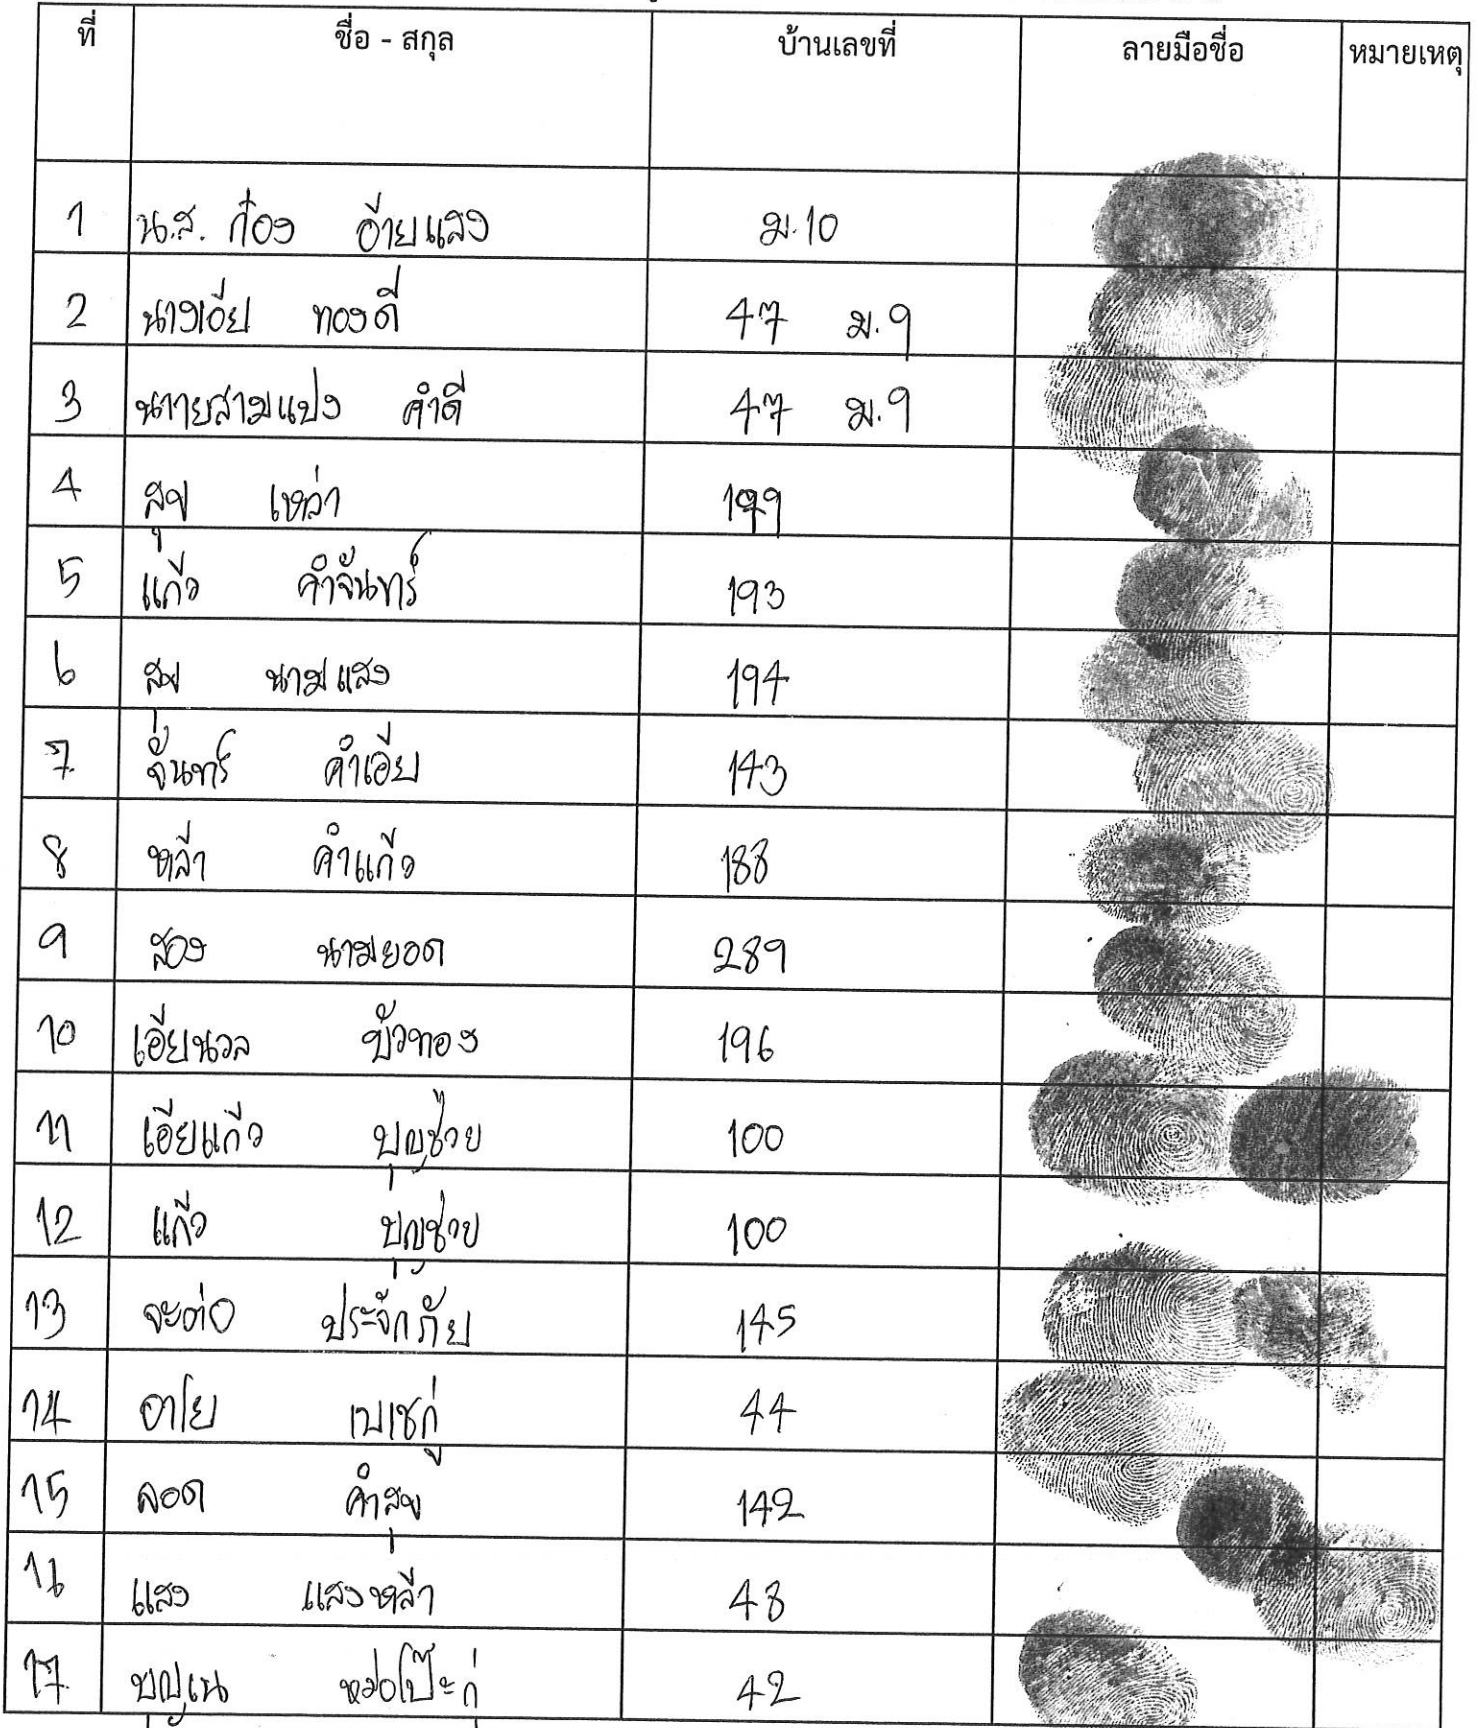 ที่ ชื่อ - สกุล บ้านเลขที่ ลายมือชื่อ หมายเหตุ
1 น.ส. ก๋อง อ้ายแสง ม.10
2 นางเอ้ย ทองดี 47 ม.9
3 นายสามแปง คำดี 47 ม.9
4 สุข เหล่า
5 แก้ว คำจันทร์ 193
6 สุข นามแสง 194
7 จันทร์ คำเอ้ย 143
8 หล้า คำแก้ว 188
9 สอง นามยอด 289
10 เอ้ยนวล บัวทอง 196
11 เอ้ยแก้ว บุญช่วย 100
12 แก้ว บุญช่วย 100
13 จะต่อ ประจักภัย 145
14 อาโย เบเชกู่ 44
15 ลอด คำสุข 142
16 แสง แสงหล้า 48
17 บุญเน หม่อโป๊ะกู่ 42